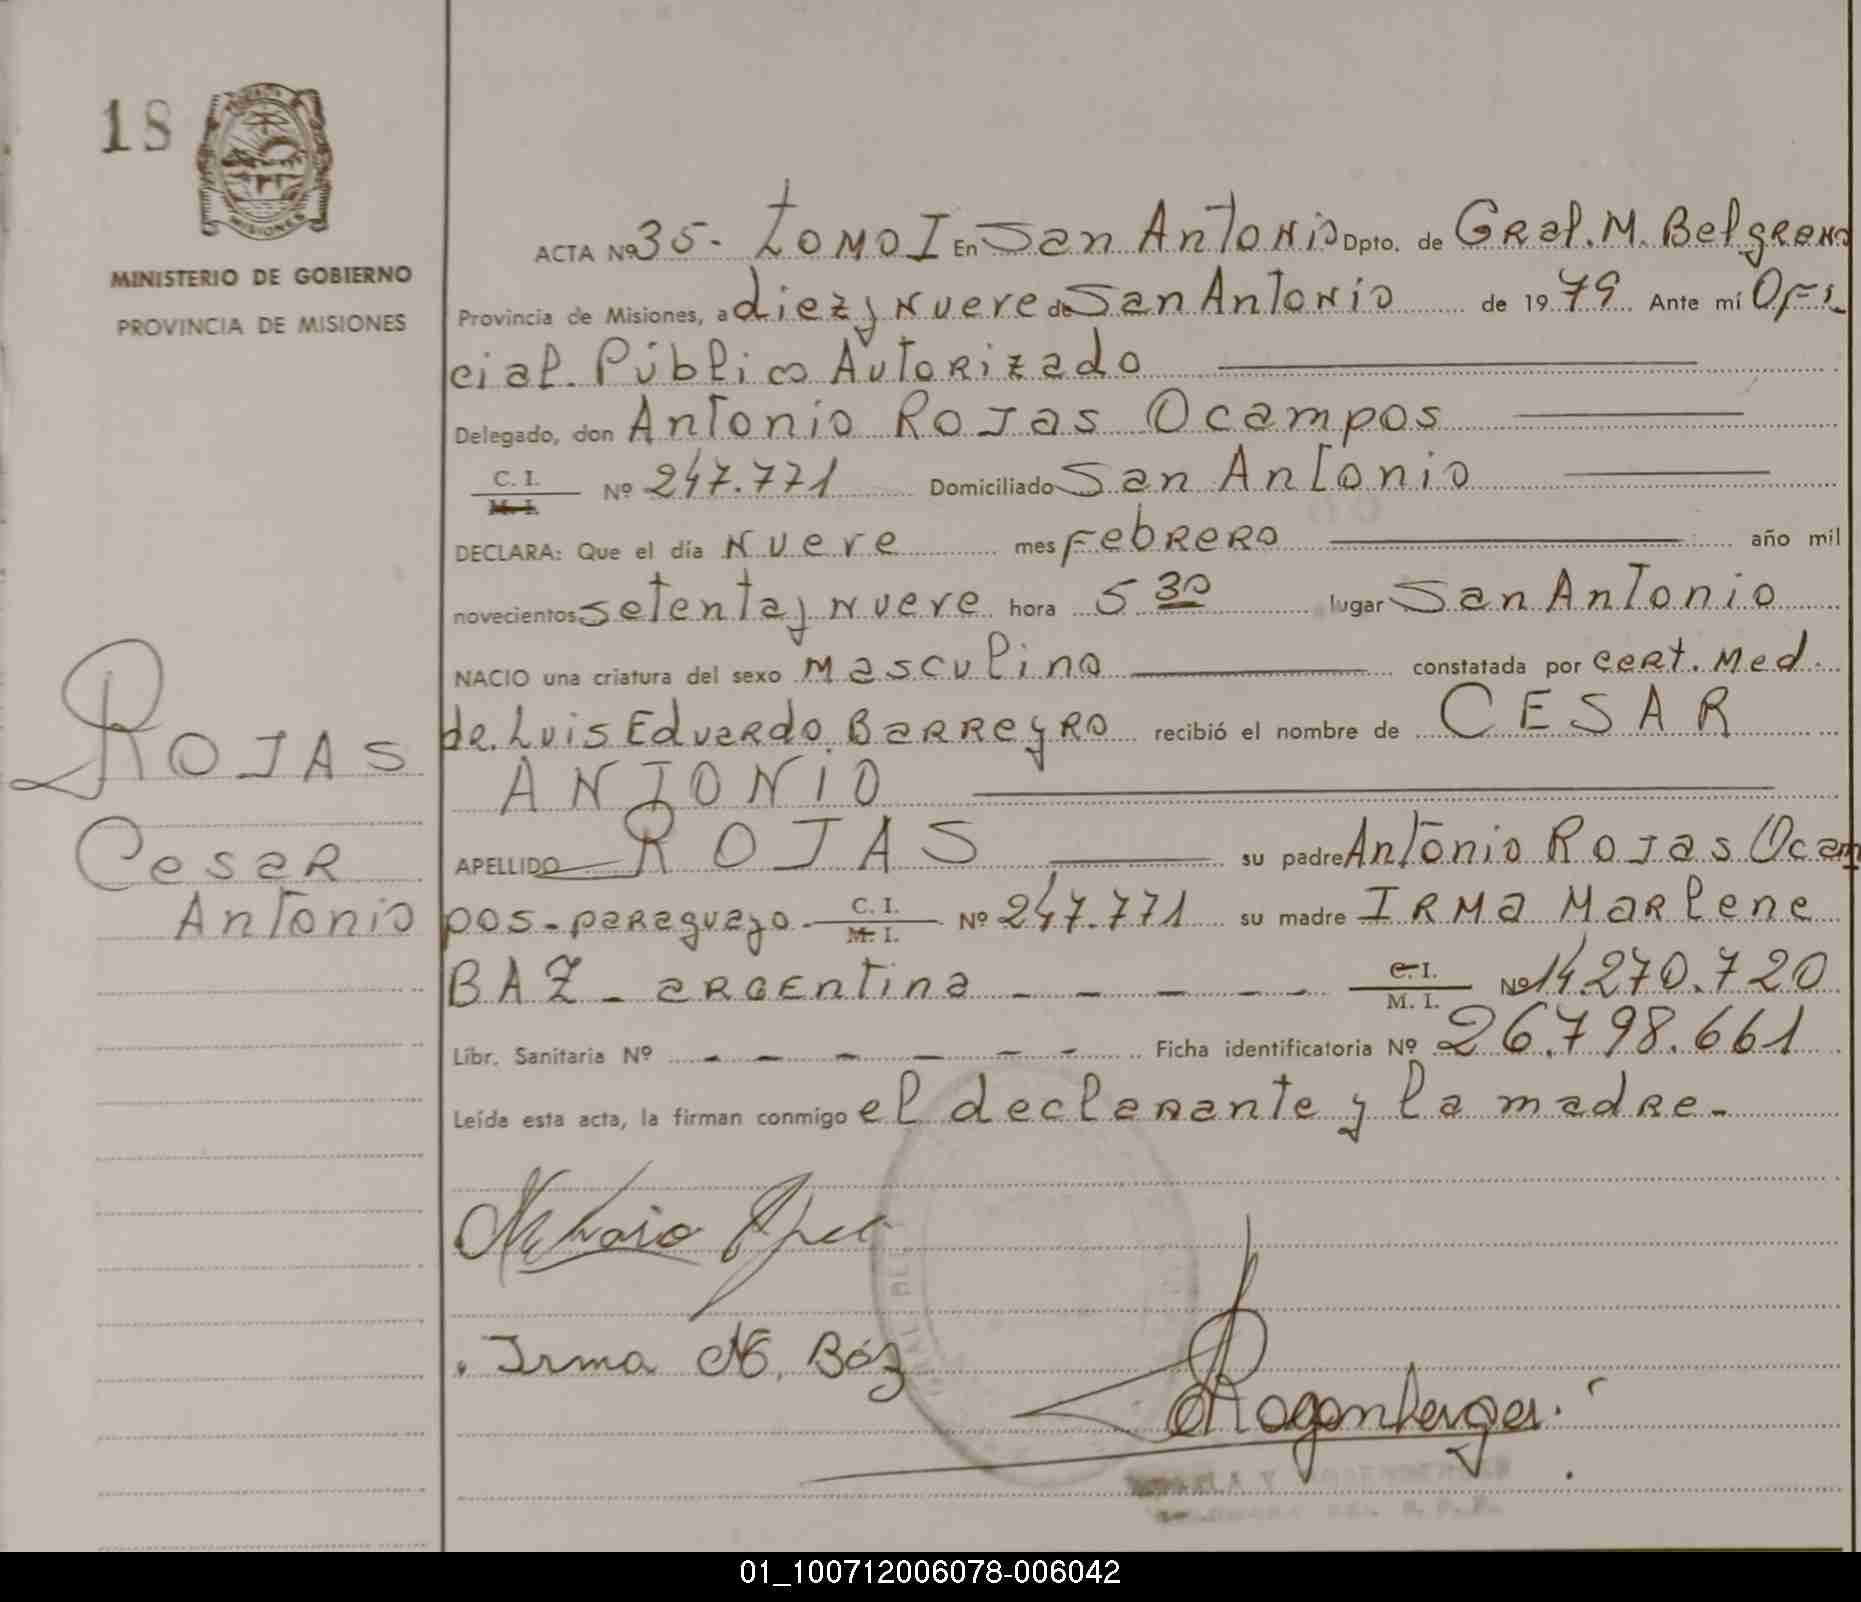 18
MISIONES
MINISTERIO DE GOBIERNO
PROVINCIA DE MISIONES
ROJAS
Cesar
Antonio
ACTA Nº 35- TOMO I En San Antonio Dpto. de Gral. M. Belgrano
Provincia de Misiones, a diez y nueve de San Antonio de 1979 Ante mí Ofi
cial. Público Autorizado
Delegado, don Antonio Rojas Ocampos
C. I.
M. I. Nº 247.771 Domiciliado San Antonio
DECLARA: Que el día Nueve mes Febrero año mil
novecientos setenta y nueve hora 5 30 lugar San Antonio
NACIO una criatura del sexo Masculino constatada por cert. Med.
de. Luis Eduardo. Barreyro recibió el nombre de CESAR
ANTONIO
APELLIDO ROJAS su padre Antonio Rojas Ocam
pos - paraguayo - C. I.
M. I. Nº 247.771 su madre IRMA Marlene
BAZ - argentina - - - - - C. I.
M. I. Nº 14.270.720
Libr. Sanitaria Nº - - - - - - Ficha identificatoria Nº 26.798.661
Leída esta acta, la firman conmigo el declarante y la madre -
Irma M. Báz
01_100712006078-006042